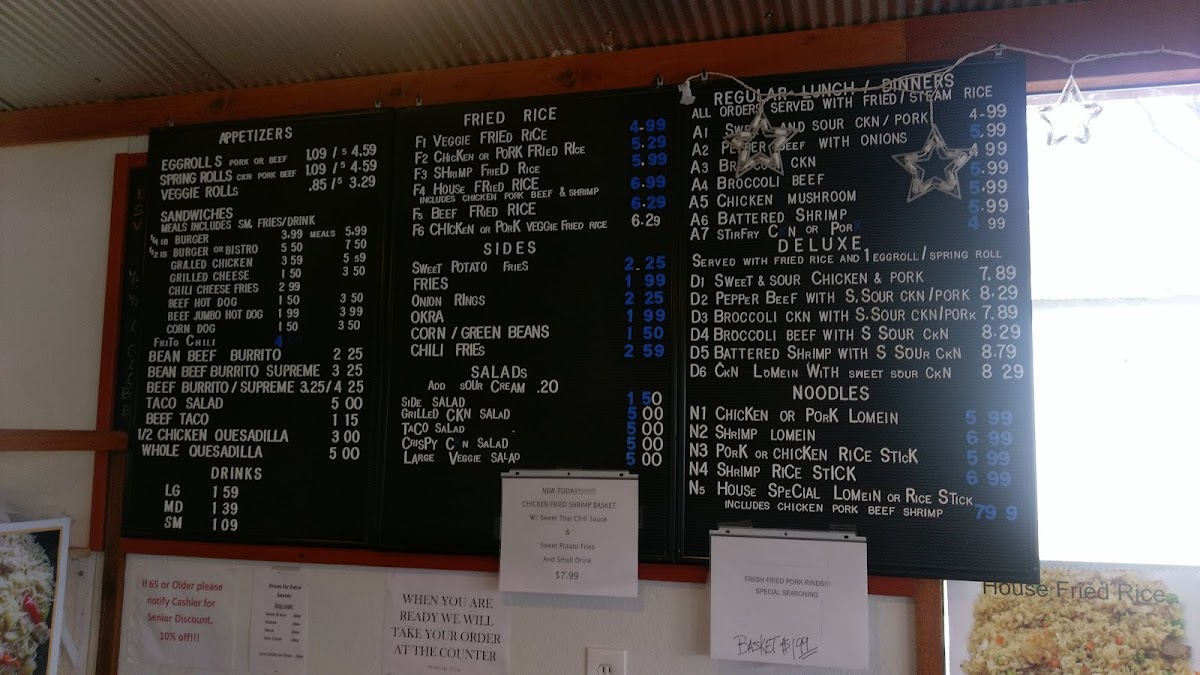 APPETIZERS
EGGROLLS PORK OR BEEF 1.09 / 5 4.59
SPRING ROLLS CKN PORK BEEF 1.09 / 5 4.59
VEGGIE ROLLS .85 / 5 3.29
SANDWICHES
MEALS INCLUDES SM. FRIES/DRINK
1/4 lb BURGER 3.99 MEALS 5.99
1/2 lb BURGER OR BISTRO 5 50 7 50
GRILLED CHICKEN 3 59 5 59
GRILLED CHEESE 1 50 3 50
CHILI CHEESE FRIES 2 99
BEEF HOT DOG 1 50 3 50
BEEF JUMBO HOT DOG 1 99 3 99
CORN DOG 1 50 3 50
FRITO CHILI 4
BEAN BEEF BURRITO 2 25
BEAN BEEF BURRITO SUPREME 3 25
BEEF BURRITO / SUPREME 3.25 / 4 25
TACO SALAD 5 00
BEEF TACO 1 15
1/2 CHICKEN QUESADILLA 3 00
WHOLE QUESADILLA 5 00
DRINKS
LG 1 59
MD 1 39
SM 1 09
FRIED RICE
F1 VEGGIE FRIED RICE 4.99
F2 CHICKEN OR PORK FRIED RICE 5.29
F3 SHRIMP FRIED RICE 5.99
F4 HOUSE FRIED RICE 6.99
INCLUDES CHICKEN PORK BEEF & SHRIMP
F5 BEEF FRIED RICE 6.29
F6 CHICKEN OR PORK VEGGIE FRIED RICE 6.29
SIDES
SWEET POTATO FRIES 2.25
FRIES 1 99
ONION RINGS 2 25
OKRA 1 99
CORN / GREEN BEANS 1 50
CHILI FRIES 2 59
SALADS
ADD SOUR CREAM .20
SIDE SALAD 1 50
GRILLED CKN SALAD 5 00
TACO SALAD 5 00
CRISPY C N SALAD 5 00
LARGE VEGGIE SALAD 5 00
REGULAR LUNCH / DINNERS
ALL ORDERS SERVED WITH FRIED / STEAM RICE
A1 SWEET AND SOUR CKN / PORK 4.99
A2 PEPPER BEEF WITH ONIONS 5.99
A3 BROCCOLI CKN 4 99
A4 BROCCOLI BEEF 5.99
A5 CHICKEN MUSHROOM 5.99
A6 BATTERED SHRIMP 5.99
A7 STIRFRY CKN OR PORK 4 99
DELUXE
SERVED WITH FRIED RICE AND 1 EGGROLL / SPRING ROLL
D1 SWEET & SOUR CHICKEN & PORK 7.89
D2 PEPPER BEEF WITH S.SOUR CKN/PORK 8.29
D3 BROCCOLI CKN WITH S.SOUR CKN/PORK 7.89
D4 BROCCOLI BEEF WITH S SOUR CKN 8.29
D5 BATTERED SHRIMP WITH S SOUR CKN 8.79
D6 CKN LOMEIN WITH SWEET SOUR CKN 8 29
NOODLES
N1 CHICKEN OR PORK LOMEIN 5 99
N2 SHRIMP LOMEIN 6 99
N3 PORK OR CHICKEN RICE STICK 5 99
N4 SHRIMP RICE STICK 6 99
N5 HOUSE SPECIAL LOMEIN OR RICE STICK
INCLUDES CHICKEN PORK BEEF SHRIMP 79 9
NEW TODAY!!!!!!!!!
CHICKEN FRIED SHRIMP BASKET
W/ Sweet Thai Chili Sauce
&
Sweet Potato Fries
And Small Drink
$7.99
FRESH FRIED PORK RINDS!!!
SPECIAL SEASONING
BASKET $1.99
If 65 or Older please
notify Cashier for
Senior Discount.
10% off!!!
Prices for Extra
WHEN YOU ARE
READY WE WILL
TAKE YOUR ORDER
AT THE COUNTER
House Fried Rice